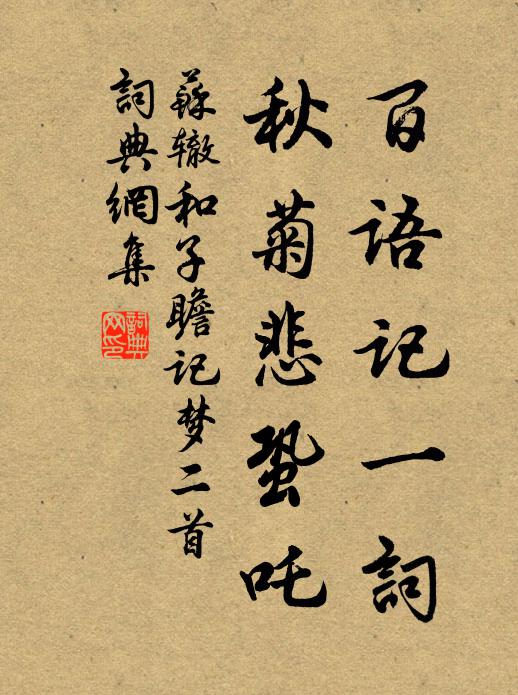 百語記一詞
秋菊悲蛩吒
蘇轍和子瞻记梦二首
詞典網集
詞典網印